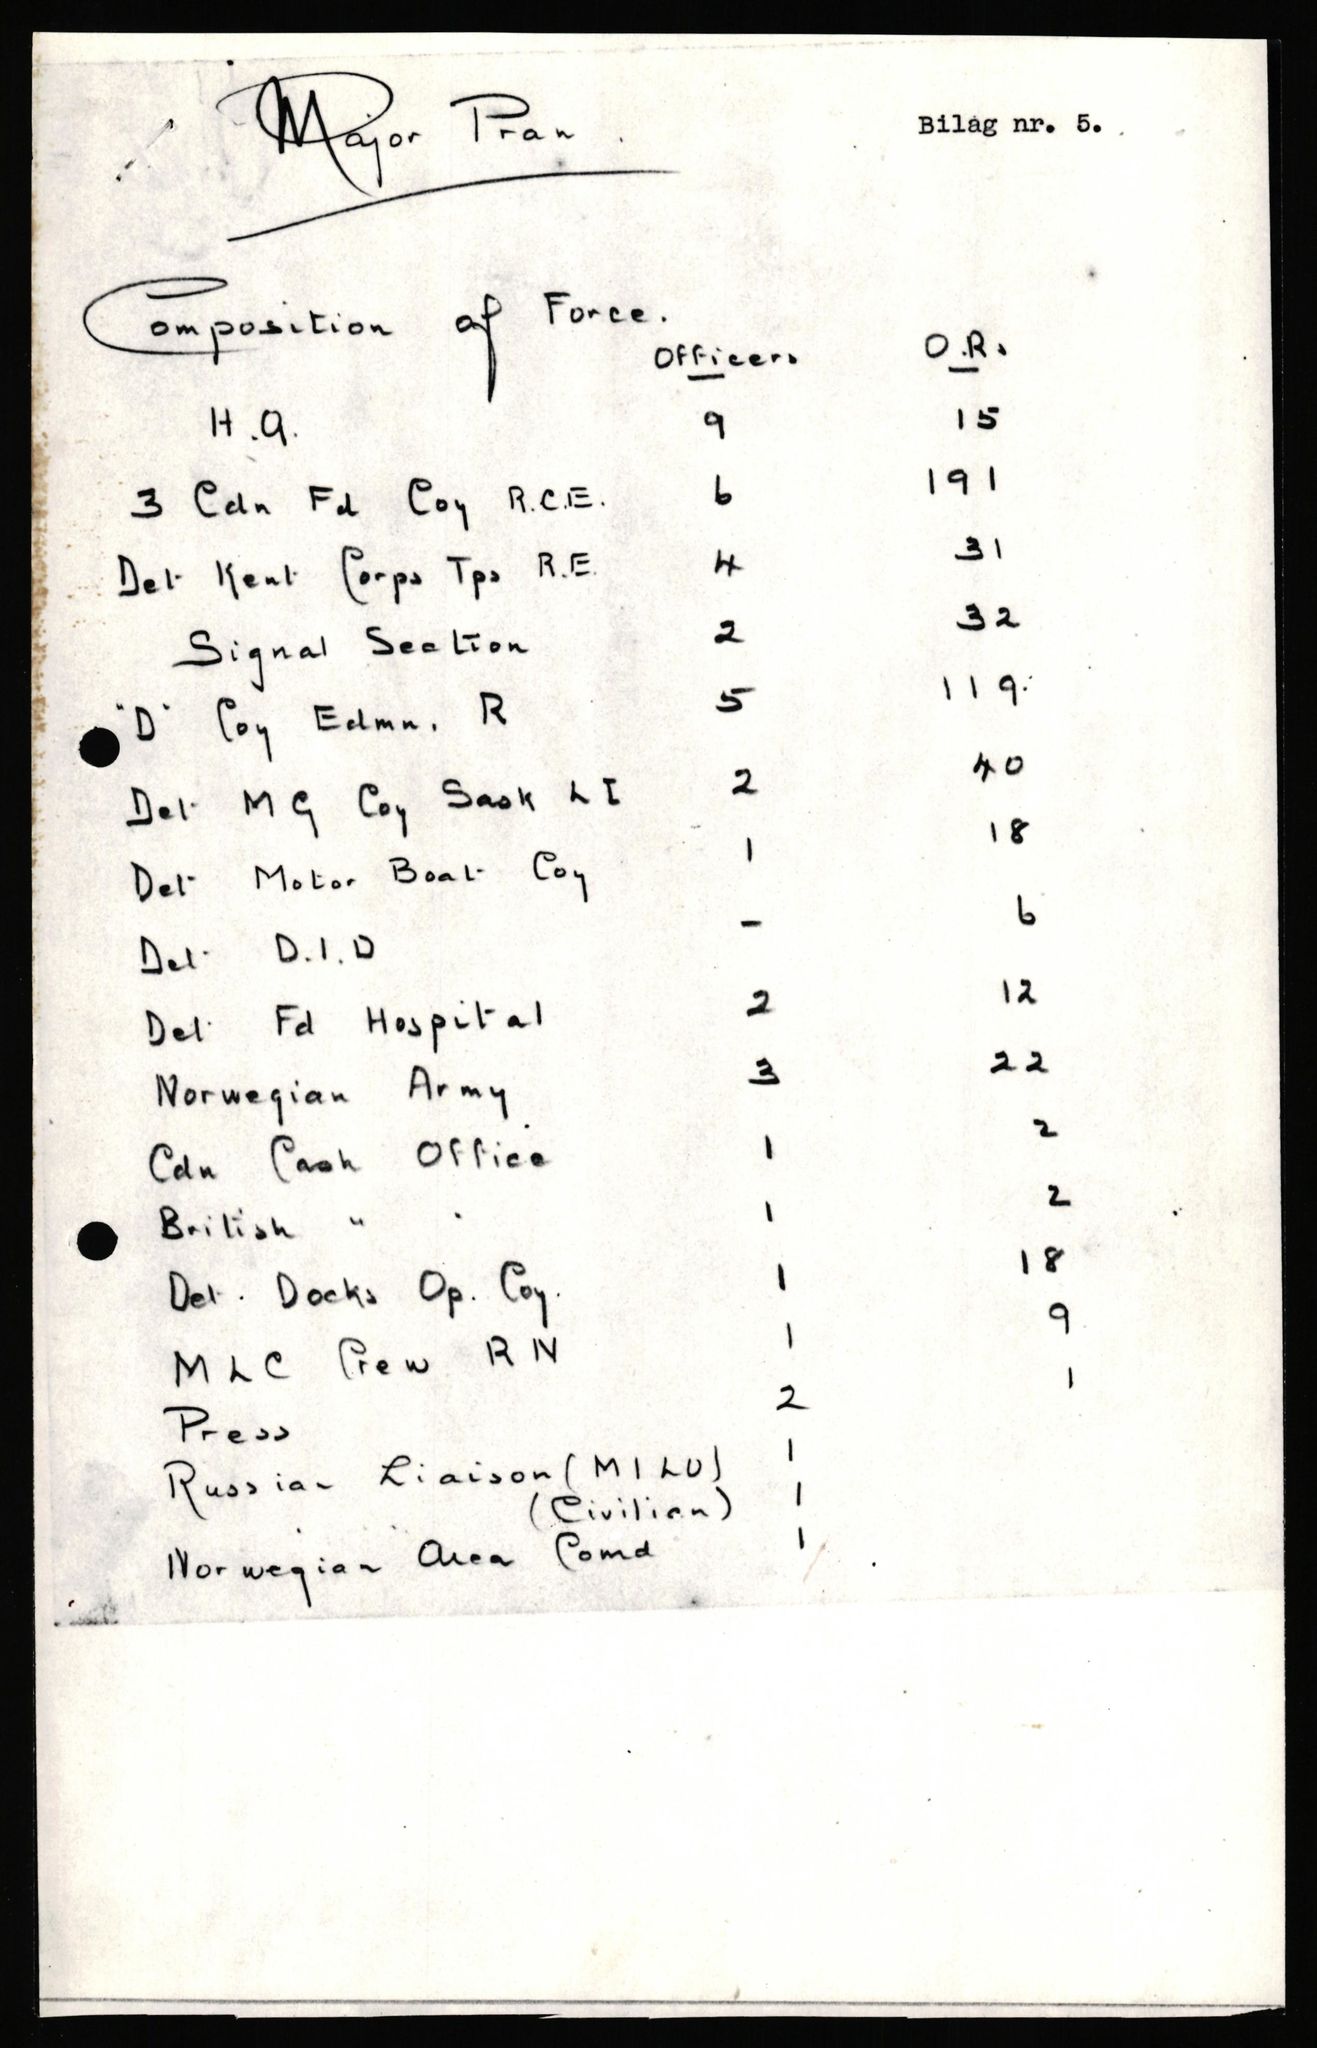 Major Pran.
Bilag nr. 5.
Composition of Force.
Officers O.Rs
H.Q. 9 15
3 Cdn Fd Coy R.C.E. 6 191
Det Kent Corps Tps R.E. 4 31
Signal Section 2 32
"D" Coy Edmn. R 5 119
Det MG Coy Sask LI 2 40
Det Motor Boat Coy 1 18
Det D.I.D - 6
Det Fd Hospital 2 12
Norwegian Army 3 22
Cdn Cash Office 1 2
British " " 1 2
Det. Docks Op. Coy. 1 18
MLC Crew RN 1 9
Press 2 1
Russian Liaison (MILU) 1
(Civilian) 1
Norwegian Area Comd 1